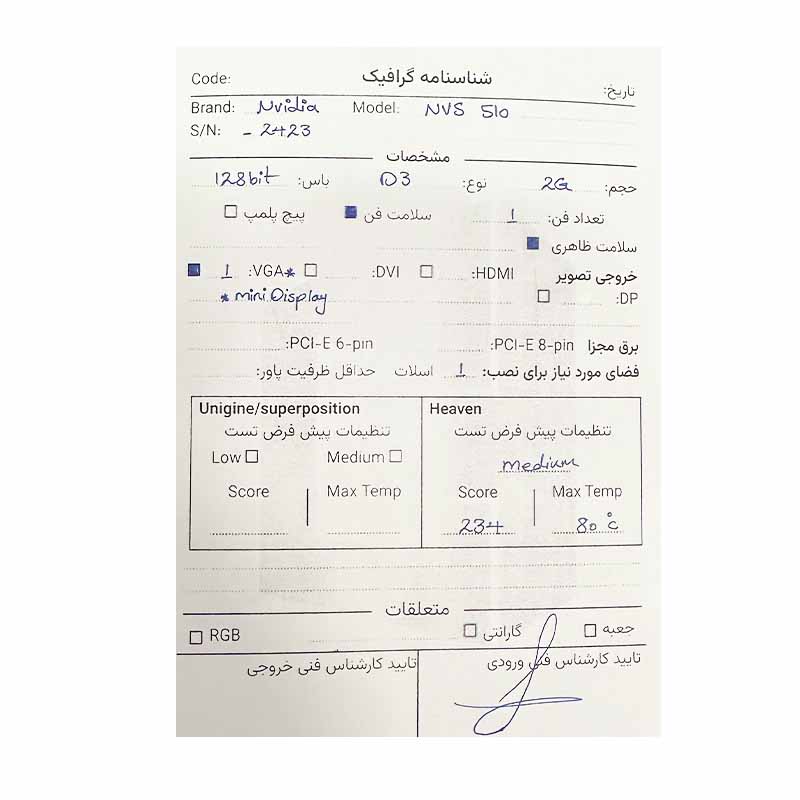 شناسنامه گرافیک Code:
تاریخ:
Brand: Nvidia Model: NVS 510
S/N: - 2423
مشخصات
حجم: 2G نوع: D3 باس: 128bit
تعداد فن: 1 سلامت فن پیچ پلمپ
سلامت ظاهری
خروجی تصویر HDMI: DVI: VGA*: 1
DP: * mini Display
برق مجزا PCI-E 8-pin: PCI-E 6-pin:
فضای مورد نیاز برای نصب: 1 اسلات حداقل ظرفیت پاور:
Unigine/superposition
تنظیمات پیش فرض تست
Low Medium
Score Max Temp
Heaven
تنظیمات پیش فرض تست
medium
Score Max Temp
234 80°c
متعلقات
جعبه گارانتی RGB
تایید کارشناس فنی ورودی تایید کارشناس فنی خروجی